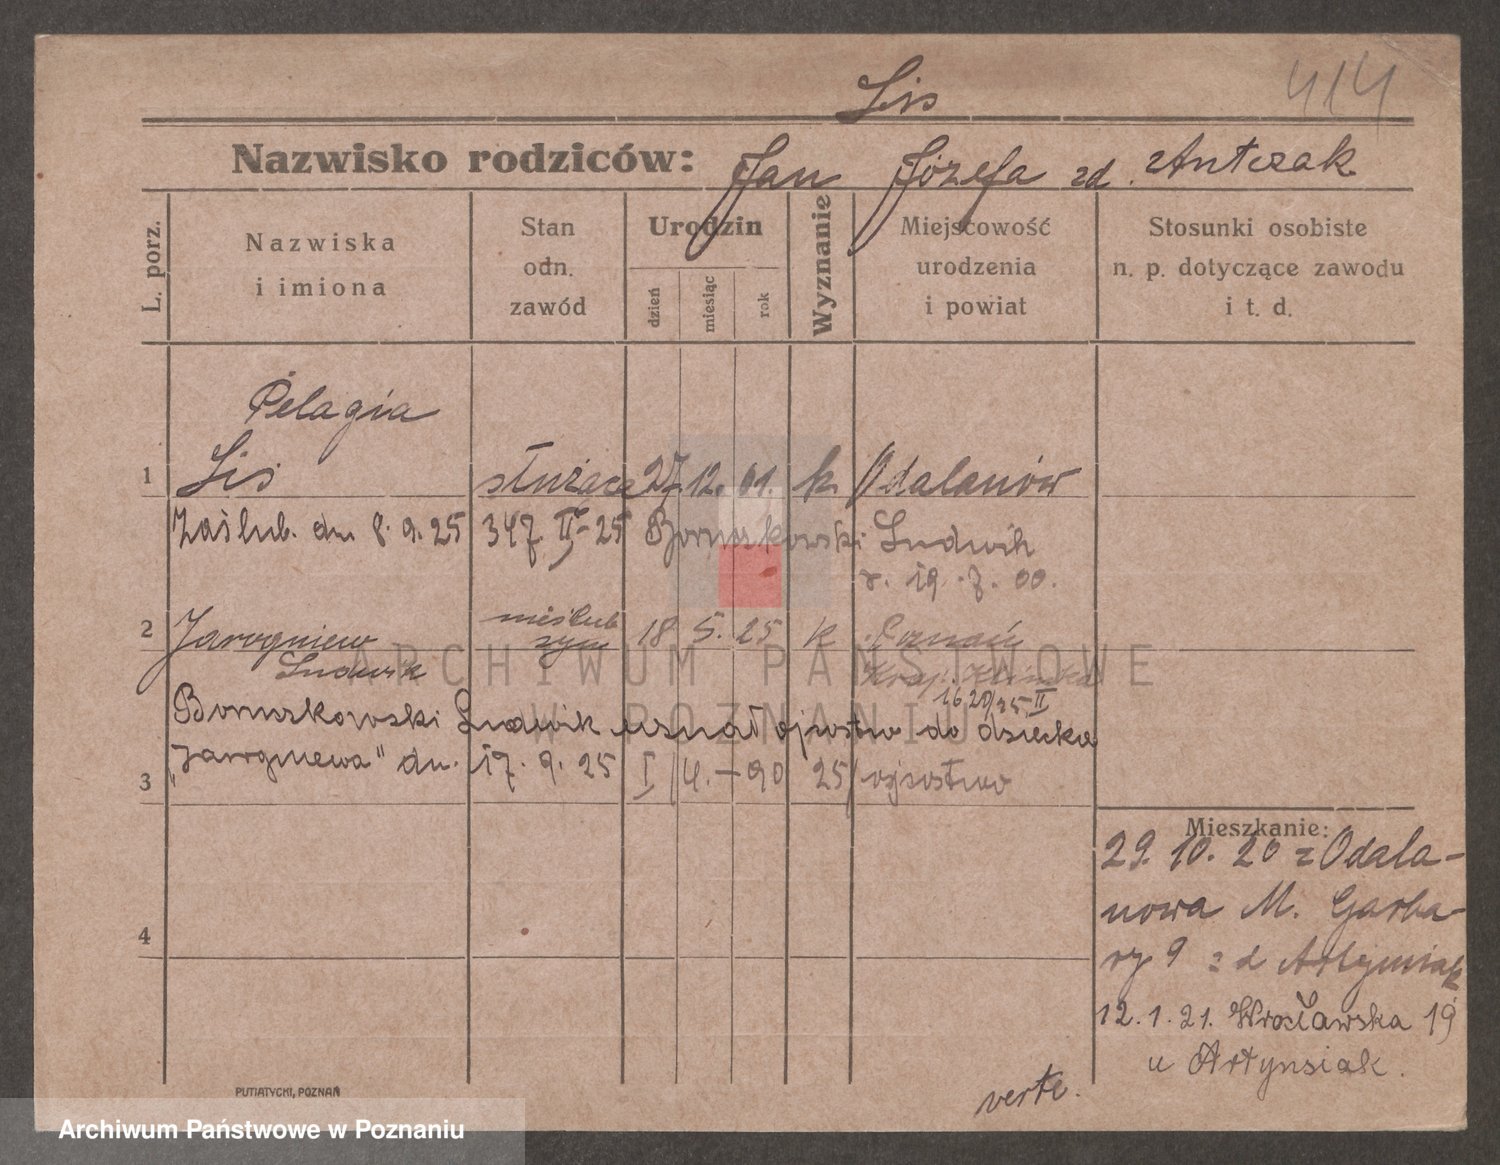 Lis
414
Nazwisko rodziców: Jan Józefa zd. Antczak
L. porz.
Nazwiska
i imiona
Stan
odn.
zawód
Urodzin
dzień
miesiąc
rok
Wyznanie
Miejscowość
urodzenia
i powiat
Stosunki osobiste
n. p. dotyczące zawodu
i t. d.
Pelagia
1 Lis służąca 27. 12. 01. k. Odalanów
Zaślub. dn 8. 9. 25 347 II 25 Ludwik
r. 19. 7. 00.
nieślub
2 Jarogniew syn 18 5. 25 k Poznań
Ludwik
1620/25 II
Ludwik uznał ojcostwo do dziecka
"Jarogniewa" dn. 17. 9. 25 I 4. — 90 25 ojcostwo
3
4
Mieszkanie:
29. 10. 20 z Odala-
nowa M. Garba-
ry 9 z d Artyniak
12. 1. 21. Wrocławska 19
u Artynsiak.
verte.
PUTIATYCKI, POZNAŃ
ARCHIWUM PAŃSTWOWE
W POZNANIU
Archiwum Państwowe w Poznaniu